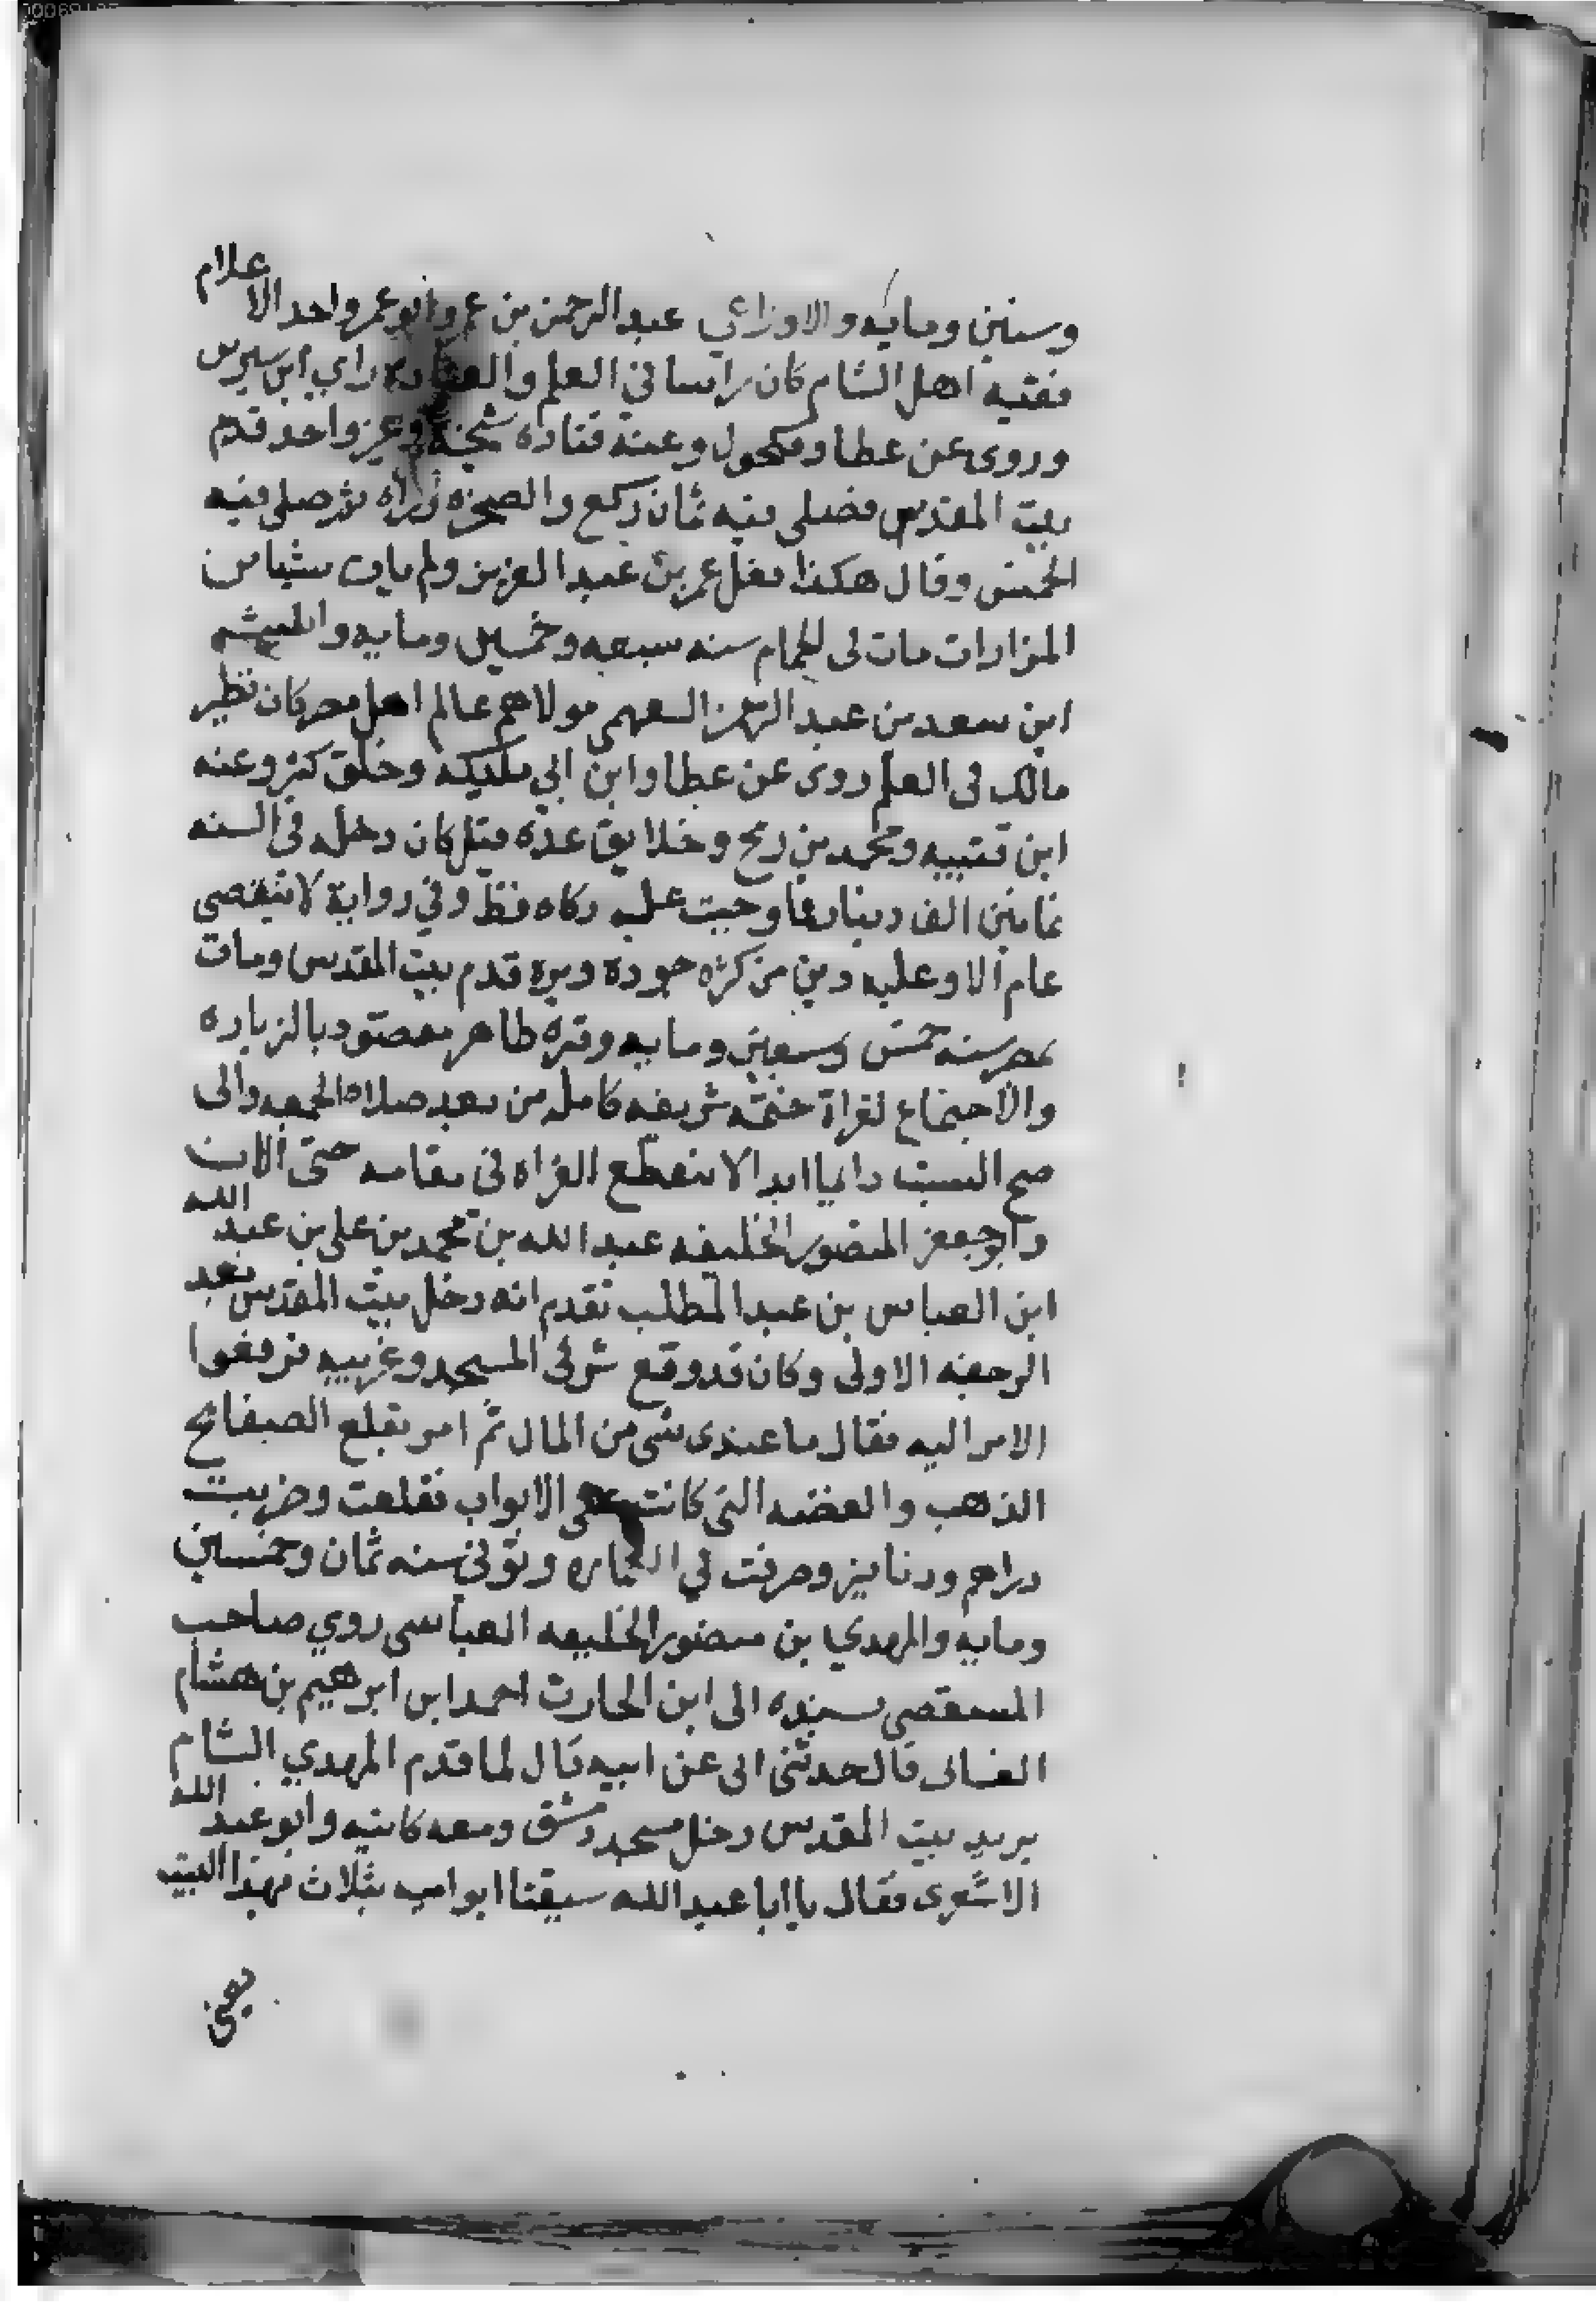 وستين ومايه والاوزاعي عبد الرحمن بن عمرو ابو عمر واحد الاعلام
فقيه اهل الشام كان راسا في العلم والعباده راي ابن سيرين
وروى عن عطا ومكحول وعنه قتاده شيخه وغير واحد قدم
بيت المقدس فصلى فيه ثمان ركع والصخره وراه ثم صلى فيه
الخمس وقال هكذا فعل عمر بن عبد العزيز ولم يات شيا من
المزارات مات في الحمام سنه سبعه وخمسين ومايه والليث
ابن سعد بن عبد الرحمن الفهمي مولاهم عالم اهل مصر كان نظير
مالك في العلم روى عن عطا وابن ابي مليكه وخلق كثير وعنه
ابن قتيبه ومحمد بن رمح وخلايق عده قيل كان دخله في السنه
ثمانين الف دينار فما وجبت عليه زكاه قط وفي رواية لا ينقضي
عام الا وعليه دين من كثره جوده وبره قدم بيت المقدس ومات
بمصر سنه خمس وسبعين ومايه وقبره ظاهر مقصود بالزياره
والاجتماع لقراة ختمه شريفه كامله من بعد صلاه الجمعه والى
صبح السبت دايما ابدا لا ينقطع القراه في مقامه حتى الان
وابو جعفر المنصور الخليفه عبد الله بن محمد بن علي بن عبد الله
ابن العباس بن عبد المطلب تقدم انه دخل بيت المقدس بعد
الرجفه الاولى وكان قد وقع شرقي المسجد وغربيه فرفعوا
الامر اليه فقال ما عندى شى من المال ثم امر بقلع الصفايح
الذهب والفضه التي كانت على الابواب فقلعت وضربت
دراهم ودنانير وصرفت في العماره وتوفى سنه ثمان وخمسين
ومايه والمهدي بن منصور الخليفه العباسى روي صاحب
المستقصى بسنده الى ابن الحارث احمد ابن ابرهيم بن هشام
الغسانى قال حدثنى ابى عن ابيه قال لما قدم المهدي الشام
يريد بيت المقدس دخل مسجد دمشق ومعه كاتبه وابو عبد الله
الاشعرى فقال يا ابا عبد الله سبقنا ابو اميه بثلاث فهذا البيت
يعنى